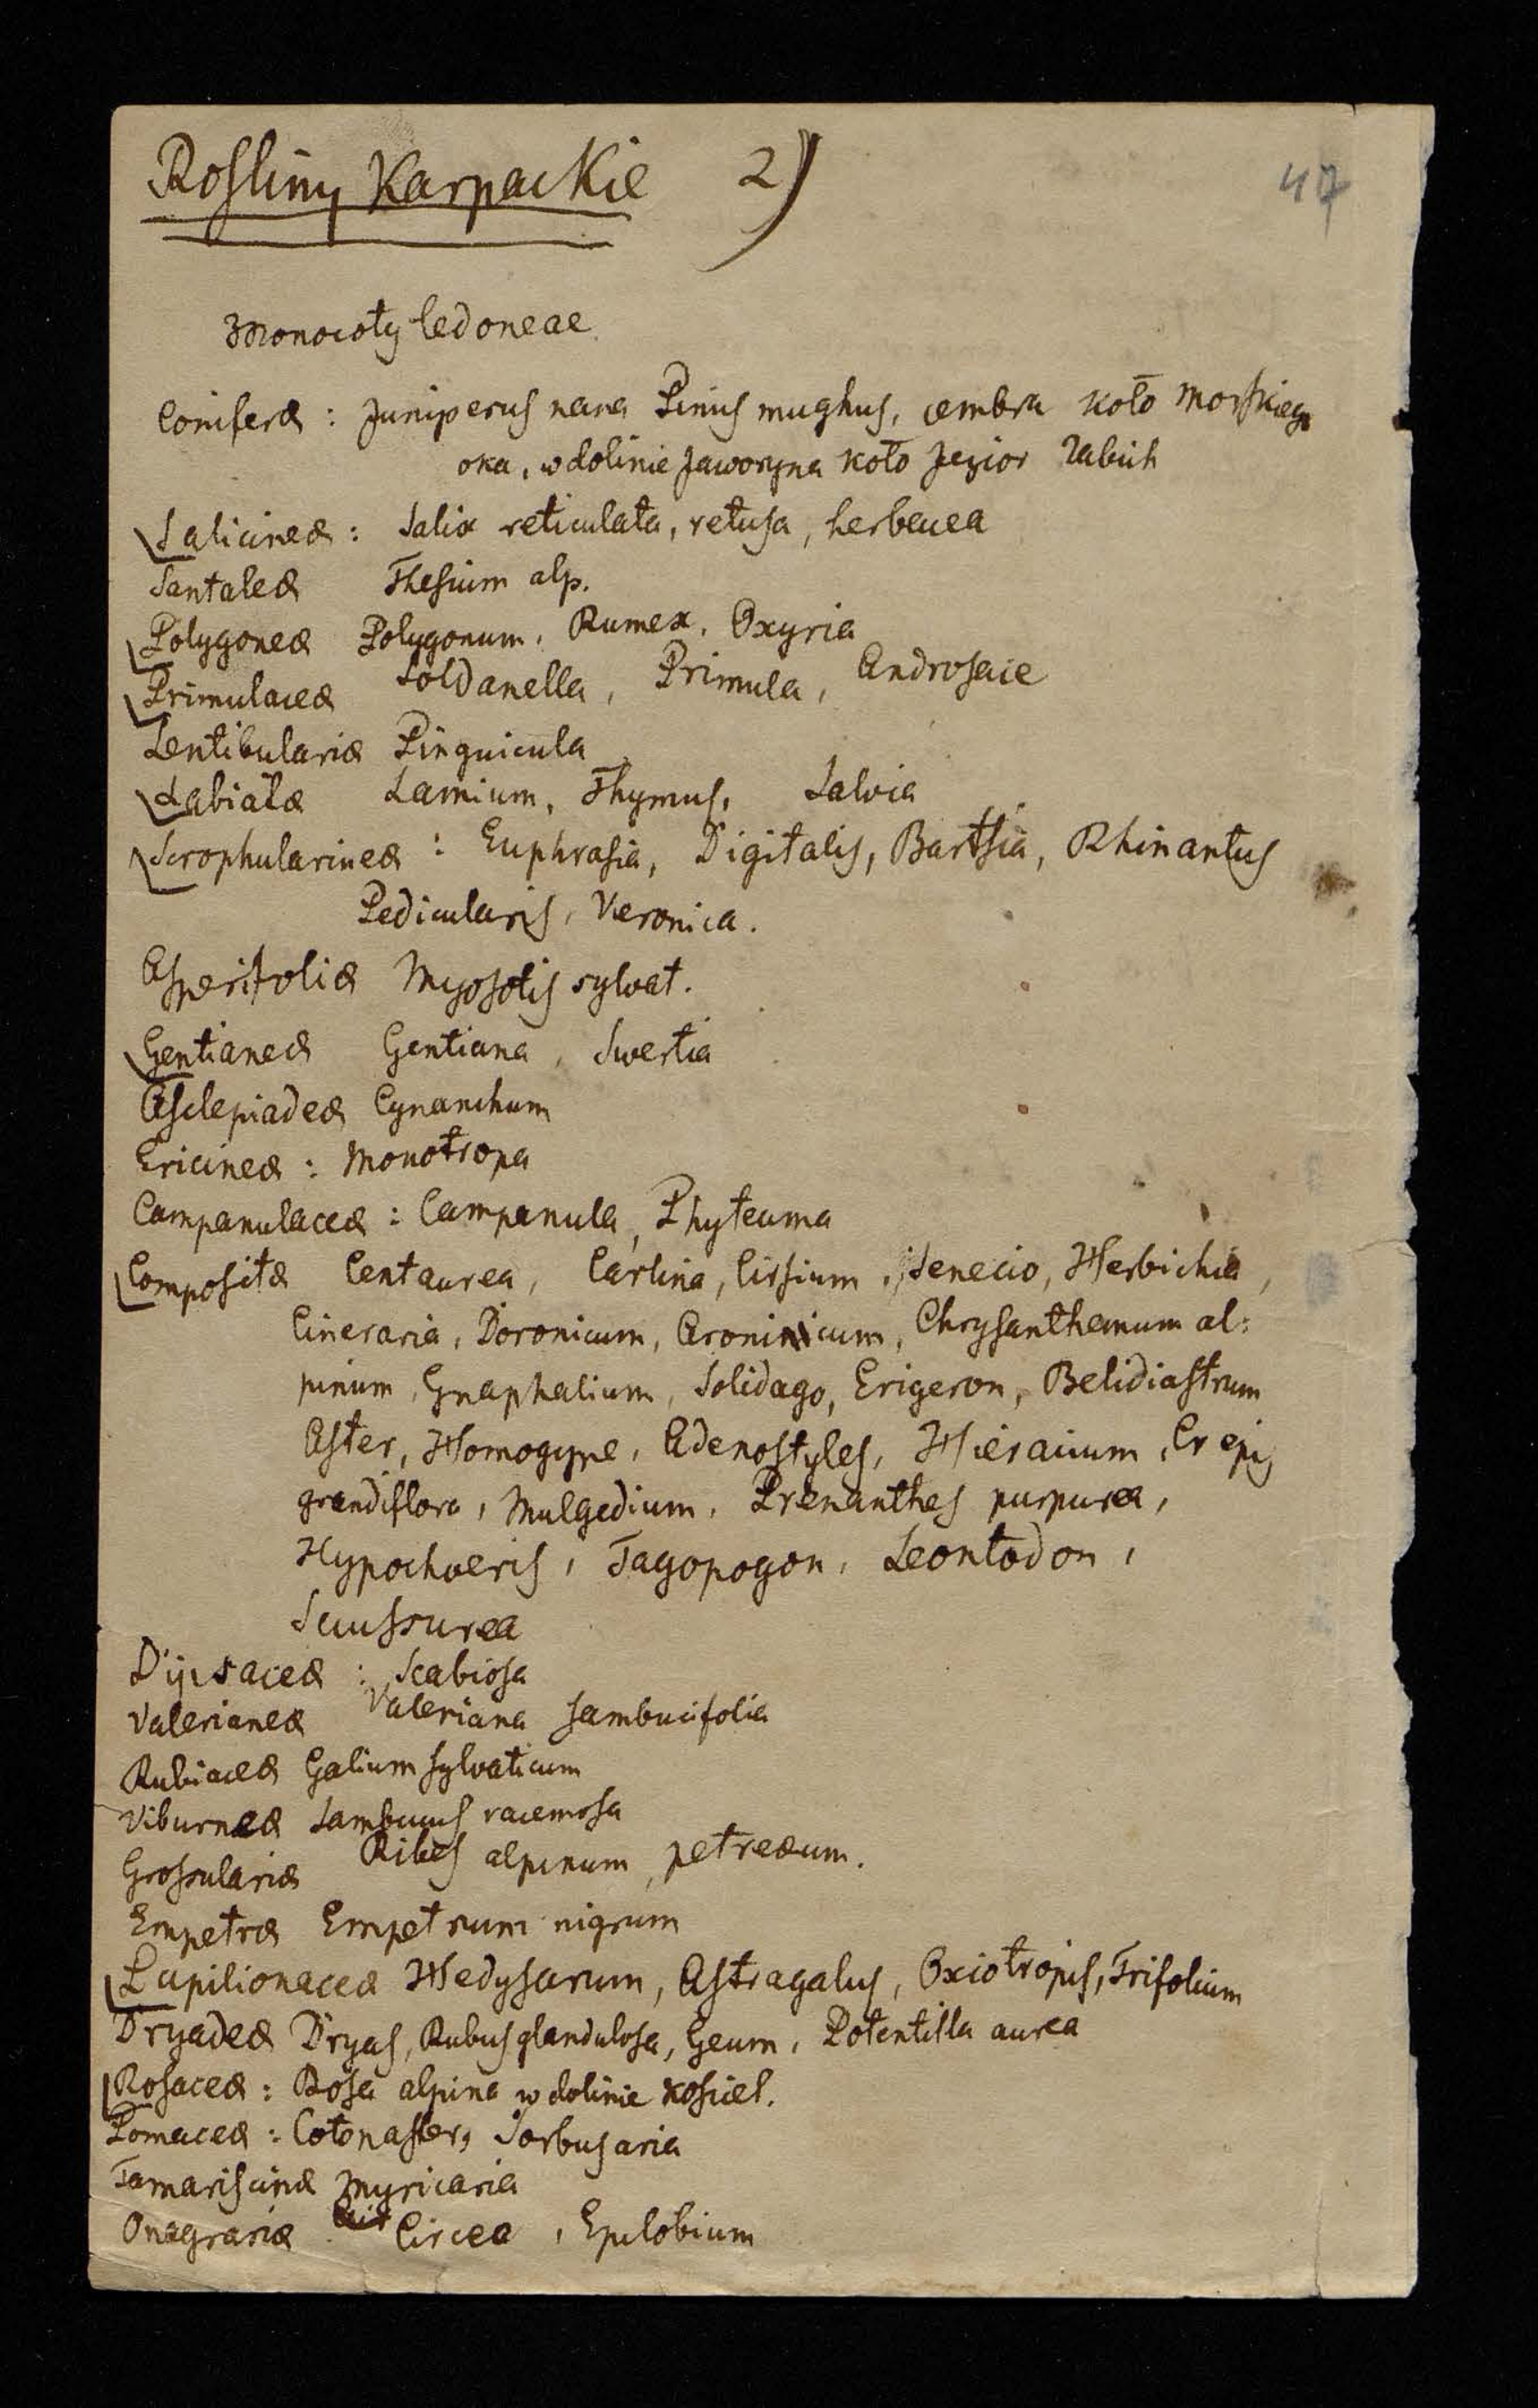 Rosliny Karpackie 2)
47
Monocotyledoneae
Coniferæ : Juniperus nana Pinus mughus, cembra koło Morskiego
oka, w dolinie Jaworzyna koło Jezior Żabich
Salicineæ : Salix reticulata, retusa, herbacea
Santaleæ Thesium alp.
Polygoneæ Polygonum, Rumex, Oxyria
Primulaceæ Soldanella, Primula, Androsace
Lentibulariæ Pinguicula
Labiatæ Lamium, Thymus, Salvia
Scrophularineæ : Euphrasia, Digitalis, Bartsia, Rhinantus
Pedicularis, Veronica.
Asperifoliæ Myosotis sylvat.
Gentianeæ Gentiana, Swertia
Asclepiadeæ Cynanchum
Ericineæ : Monotropa
Campanulaceæ : Campanula, Phyteuma
Compositæ Centaurea, Carlina, Cirsium, Senecio, Herbichia,
Cineraria, Doronicum, Aronicum, Chrysanthemum al:
pinum, Gnaphalium, Solidago, Erigeron, Belidiastrum
Aster, Homogyne, Adenostyles, Hieracium, Crepis
grandiflora, Mulgedium, Prenanthes purpurea,
Hypochaeris, Tagopogon, Leontodon,
Saussurea
Dipsaceæ : Scabiosa
Valerianeæ Valeriana sambucifolia
Rubiaceæ Galium sylvaticum
Viburneæ Sambucus racemosa
Grossulariæ Ribes alpinum, petreæum.
Empetræ Empetrum nigrum
Papilionaceæ Hedysarum, Astragalus, Oxiotropis, Trifolium
Dryadeæ Dryas, Rubus glandulosa, Geum, Potentilla aurea
Rosaceæ : Rosa alpina w dolinie Kosciel.
Pomaceæ : Cotonaster, Sorbus aria
Tamariscinæ Myricaria
Onagrariæ Circea, Epilobium